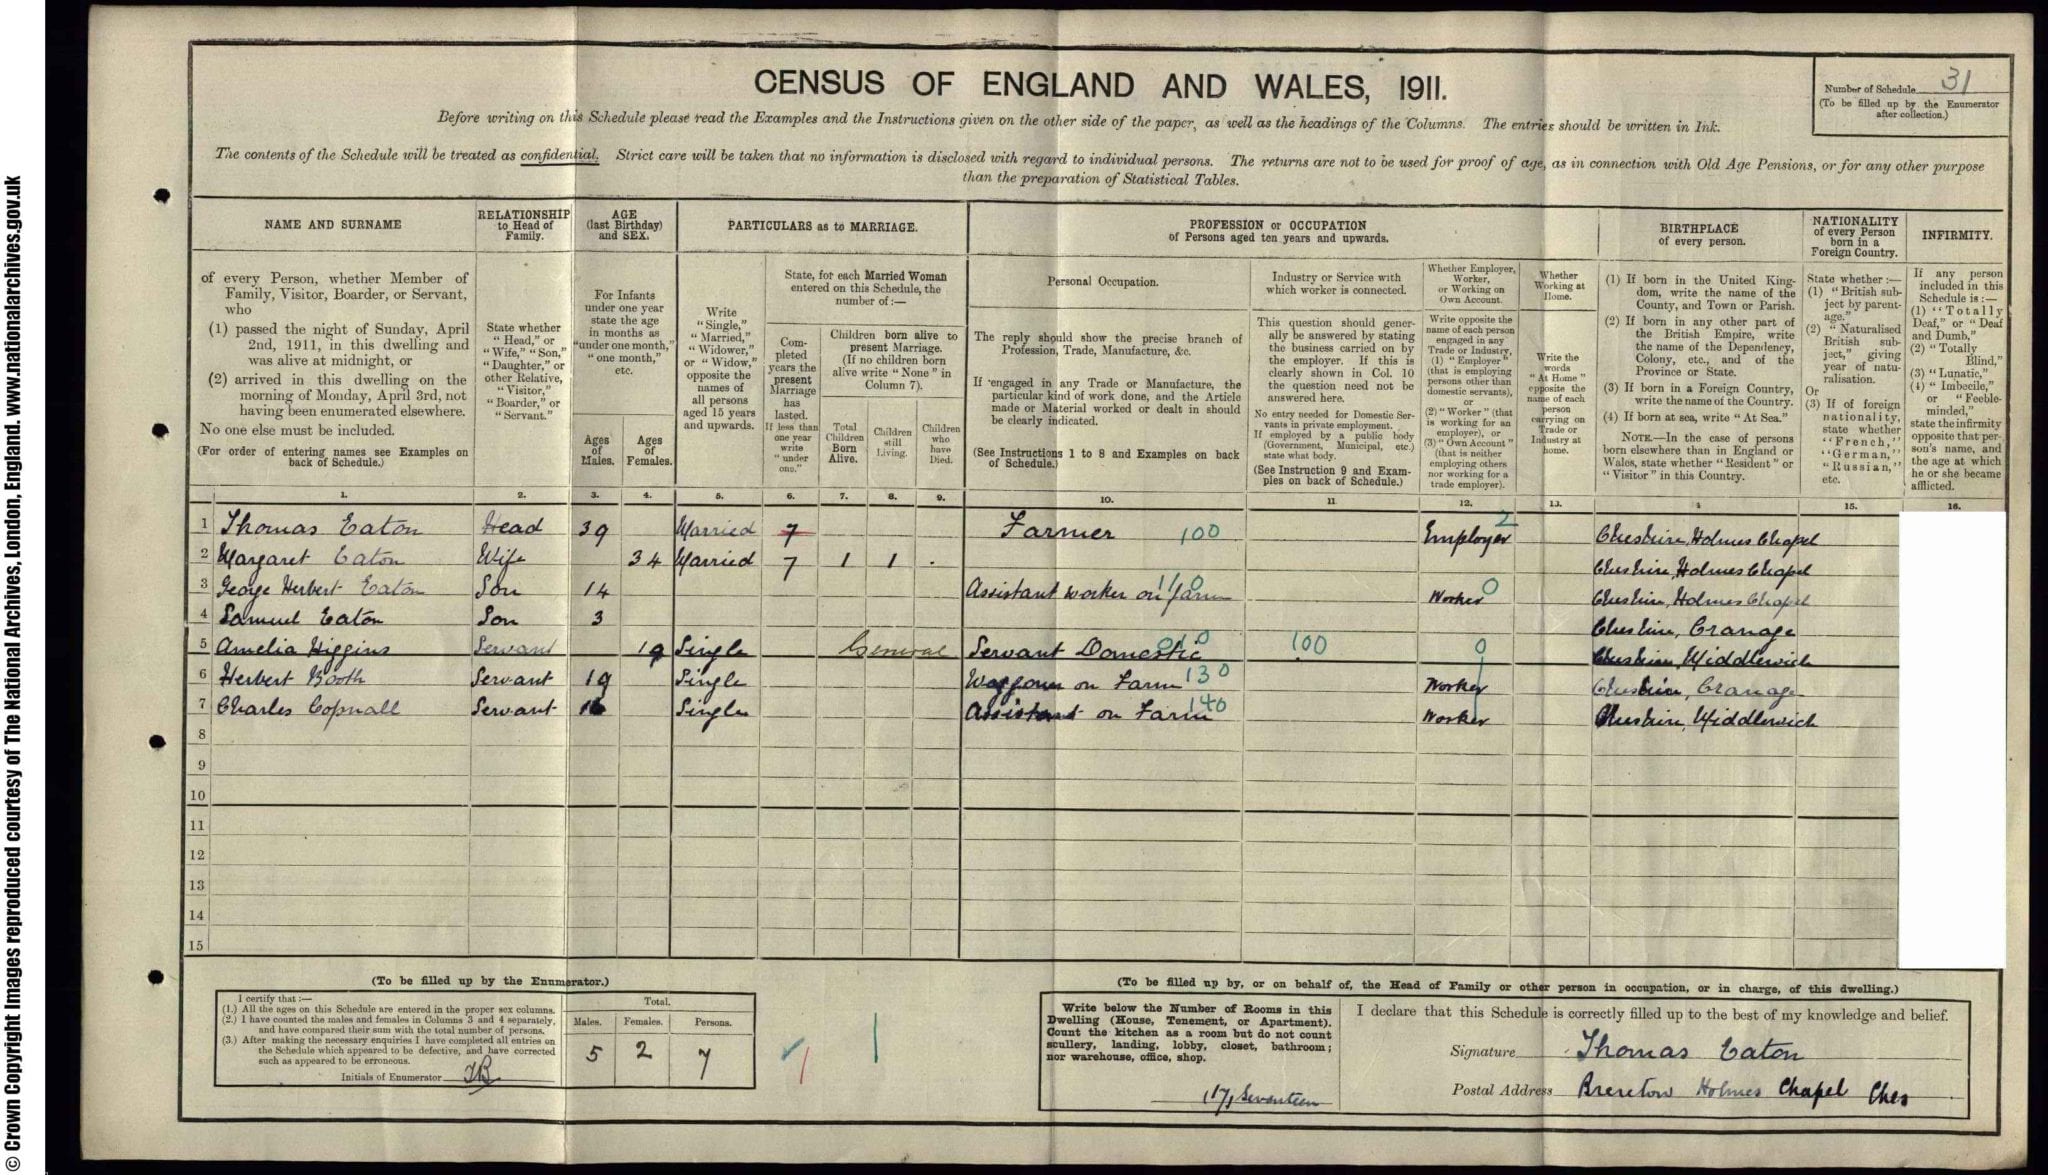 © Crown Copyright Images reproduced courtesy of The National Archives, London, England. www.nationalarchives.gov.uk
CENSUS OF ENGLAND AND WALES, 1911.
Number of Schedule 31
(To be filled up by the Enumerator
after collection.)
Before writing on this Schedule please read the Examples and the Instructions given on the other side of the paper, as well as the headings of the Columns. The entries should be written in Ink.
The contents of the Schedule will be treated as confidential. Strict care will be taken that no information is disclosed with regard to individual persons. The returns are not to be used for proof of age, as in connection with Old Age Pensions, or for any other purpose
than the preparation of Statistical Tables.
NAME AND SURNAME
of every Person, whether Member of
Family, Visitor, Boarder, or Servant,
who
(1) passed the night of Sunday, April
2nd, 1911, in this dwelling and
was alive at midnight, or
(2) arrived in this dwelling on the
morning of Monday, April 3rd, not
having been enumerated elsewhere.
No one else must be included.
(For order of entering names see Examples on
back of Schedule.)
RELATIONSHIP
to Head of
Family.
State whether
"Head," or
"Wife," "Son,"
"Daughter," or
other Relative,
"Visitor,"
"Boarder," or
"Servant."
AGE
(last Birthday)
and SEX.
For Infants
under one year
state the age
in months as
"under one month,"
"one month,"
etc.
Ages
of
Males.
Ages
of
Females.
PARTICULARS as to MARRIAGE.
Write
"Single,"
"Married,"
"Widower,"
or "Widow,"
opposite the
names of
all persons
aged 15 years
and upwards.
State, for each Married Woman
entered on this Schedule, the
number of:—
Com-
pleted
years the
present
Marriage
has
lasted.
If less than
one year
write
"under
one."
Children born alive to
present Marriage.
(If no children born
alive write "None" in
Column 7).
Total
Children
Born
Alive.
Children
still
Living.
Children
who
have
Died.
PROFESSION or OCCUPATION
of Persons aged ten years and upwards.
Personal Occupation.
The reply should show the precise branch of
Profession, Trade, Manufacture, &c.
If engaged in any Trade or Manufacture, the
particular kind of work done, and the Article
made or Material worked or dealt in should
be clearly indicated.
(See Instructions 1 to 8 and Examples on back
of Schedule.)
Industry or Service with
which worker is connected.
This question should gener-
ally be answered by stating
the business carried on by
the employer. If this is
clearly shown in Col. 10
the question need not be
answered here.
No entry needed for Domestic Ser-
vants in private employment.
If employed by a public body
(Government, Municipal, etc.)
state what body.
(See Instruction 9 and Exam-
ples on back of Schedule.)
Whether Employer,
Worker,
or Working on
Own Account.
Write opposite the
name of each person
engaged in any
Trade or Industry,
(1) "Employer"
(that is employing
persons other than
domestic servants),
or
(2) "Worker" (that
is working for an
employer), or
(3) "Own Account"
(that is neither
employing others
nor working for a
trade employer).
Whether
Working at
Home.
Write the
words
"At Home"
opposite the
name of each
person
carrying on
Trade or
Industry at
home.
BIRTHPLACE
of every person.
(1) If born in the United King-
dom, write the name of the
County, and Town or Parish.
(2) If born in any other part of
the British Empire, write
the name of the Dependency,
Colony, etc., and of the
Province or State.
(3) If born in a Foreign Country,
write the name of the Country.
(4) If born at sea, write "At Sea."
NOTE.—In the case of persons
born elsewhere than in England or
Wales, state whether "Resident" or
"Visitor" in this Country.
NATIONALITY
of every Person
born in a
Foreign Country.
State whether:—
(1) "British sub-
ject by parent-
age."
(2) "Naturalised
British sub-
ject," giving
year of natu-
ralisation.
Or
(3) If of foreign
nationality,
state whether
"French,"
"German,"
"Russian,"
etc.
INFIRMITY.
If any person
included in this
Schedule is:—
(1) "Totally
Deaf," or "Deaf
and Dumb,"
(2) "Totally
Blind,"
(3) "Lunatic,"
(4) "Imbecile,"
or "Feeble-
minded,"
state the infirmity
opposite that per-
son's name, and
the age at which
he or she became
afflicted.
1. 2. 3. 4. 5. 6. 7. 8. 9. 10. 11 12. 13. 4 15. 16.
1 Thomas Eaton Head 39 Married 7 Farmer 100 Employer 2 Cheshire, Holmes Chapel
2 Margaret Eaton Wife 34 Married 7 1 1 . Cheshire, Holmes Chapel
3 George Herbert Eaton Son 14 Assistant worker on farm 1/0 Worker 0 Cheshire, Holmes Chapel
4 Samuel Eaton Son 3 Cheshire, Cranage
5 Amelia Higgins Servant 19 Single General Servant Domestic 010 100 0 Cheshire, Middlewich
6 Herbert Booth Servant 19 Single Waggoner on Farm 130 Worker Cheshire, Cranage
7 Charles Copnall Servant 16 Single Assistant on Farm 140 Worker Cheshire, Middlewich
8
9
10
11
12
13
14
15
(To be filled up by the Enumerator.)
I certify that:—
(1.) All the ages on this Schedule are entered in the proper sex columns.
(2.) I have counted the males and females in Columns 3 and 4 separately,
and have compared their sum with the total number of persons.
(3.) After making the necessary enquiries I have completed all entries on
the Schedule which appeared to be defective, and have corrected
such as appeared to be erroneous.
Initials of Enumerator
Total.
Males. Females. Persons.
5 2 7
(To be filled up by, or on behalf of, the Head of Family or other person in occupation, or in charge, of this dwelling.)
Write below the Number of Rooms in this
Dwelling (House, Tenement, or Apartment).
Count the kitchen as a room but do not count
scullery, landing, lobby, closet, bathroom;
nor warehouse, office, shop.
(17) Seventeen
I declare that this Schedule is correctly filled up to the best of my knowledge and belief.
Signature Thomas Eaton
Postal Address Brereton Holmes Chapel Ches